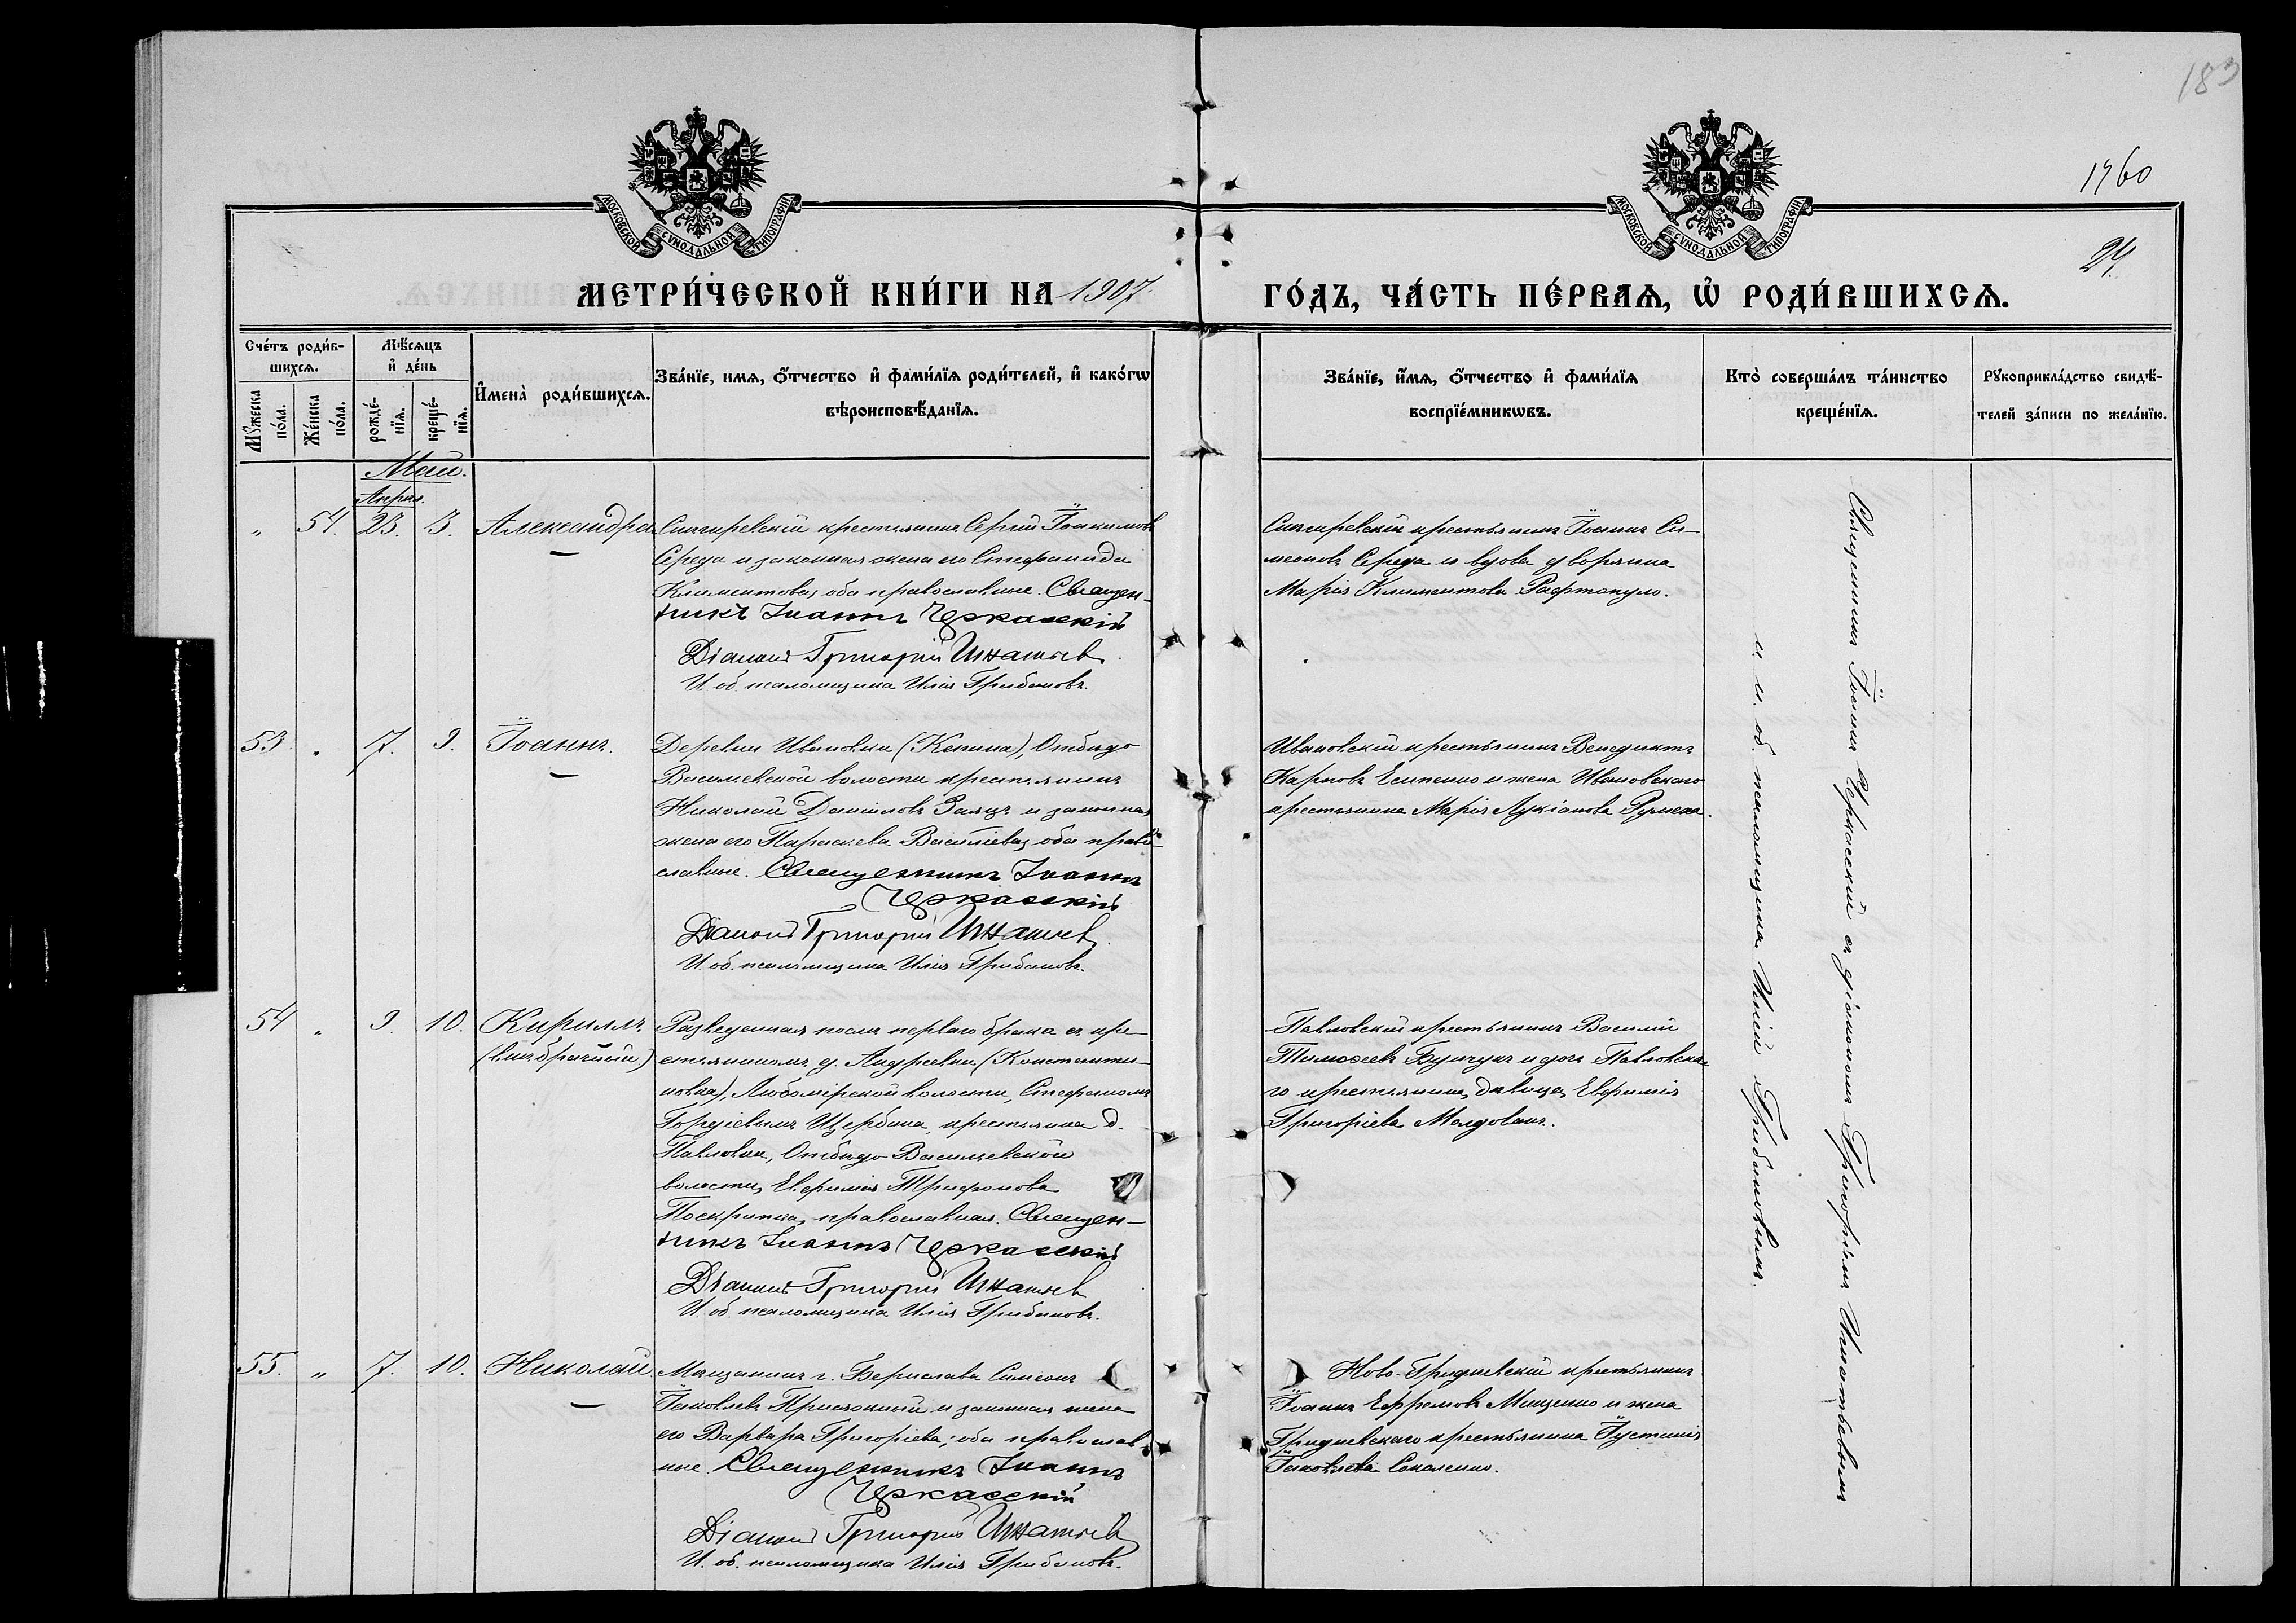 183
1760
24.
МОСКОВСКОЙ СѴНОДАЛЬНОЙ ТИПОГРАФІИ
МОСКОВСКОЙ СѴНОДАЛЬНОЙ ТИПОГРАФІИ
МЕТРИ́ЧЕСКОЙ КНИ́ГИ НА 1907
ГО́ДЪ, ЧА́СТЬ ПЕ́РВАѦ, Ѡ҆ РОДИ́ВШИХСѦ.
Сче́тъ роди́в-
шихсѧ.
Мꙋ́жеска по́ла.
Же́нска по́ла.
Мѣ́сѧцъ
и҆ де́нь
рожде́-
нїѧ.
креще́-
нїѧ.
И҆мена̀ роди́вшихсѧ.
Зва́нїе, имѧ, ѻ҆́тчество и҆ фами́лїѧ роди́телей, и҆ како́гѡ
вѣроисповѣ́данїѧ.
Зва́нїе, и҆́мѧ, ѻ҆́тчество и҆ фами́лїѧ
воспрїе́мникѡвъ.
Кто̀ соверша́лъ та́инство
креще́нїѧ.
Рꙋкоприкла́дство свидѣ́-
телей за́писи по жела́нїю.
Май.
Апрѣл.
" 54. 23. 3. Александра
Снигиревскій крестьянинъ Сергій Іоакимовъ
Середа и законная жена его Стефанида
Климентова, оба православные. Священ-
никъ Іоаннъ Черкасскій
Діаконъ Григорій Игнатьев
И. об. псаломщика Илія Грибановъ.
Снигиревскій крестьянинъ Іоаннъ Си-
меоновъ Середа и вдова дворянина
Марія Климентова Рафтопуло.
53. " 7. 9. Іоаннъ.
Деревни Ивановки (Кепина), Отбѣдо
Васильевской волости крестьянинъ
Николай Даніиловъ Заяцъ и законная
жена его Параскева Васильева, оба право-
славные. Священникъ Іоаннъ
Черкасскій
Діаконъ Григорій Игнатьев.
И. об. псаломщика Илія Грибановъ.
Ивановскій крестьянинъ Венедиктъ
Карповъ Есипенко и жена Ивановскаго
крестьянина Марія Лукіанова
54 " 9. 10. Кириллъ
(внѣбрачный)
Разведенная послѣ перваго брака съ кре-
стьяниномъ д. Андреевки (Константи-
новка), Любомірской волости, Стефаномъ
Гордіевымъ Щербина, крестьянка д.
Павловки, Отбѣдо-Васильевской
волости, Евфимія Трифонова
Поскрипка, православная. Священ-
никъ Іоаннъ Черкасскій
Діаконъ Григорій Игнатьев
И. об. псаломщика Илія Грибановъ.
Павловскій крестьянинъ Василій
Тимоѳеевъ Бунчукъ и дочь Павловска-
го крестьянина, дѣвица, Евфимія
Григоріева Молдованъ.
55. " 7. 10. Николай.
Мѣщанинъ г. Берислава Симеонъ
Іаковлевъ Присяжный и законная жена
его Варвара Григоріева; оба православ-
ные. Священникъ Іоаннъ
Черкасскій
Діаконъ Григорій Игнатьев
И. об. псаломщика Илія Грибановъ.
Ново-Гридневскій крестьянинъ
Іоаннъ Ефремовъ Мищенко и жена
Гридневскаго крестьянина Іустинія
Іаковлева Соколенко.
Священникъ Іоаннъ Черкасскій съ діакономъ Григоріемъ Игнатьевымъ
и и. об. псаломщика Иліей Грибановымъ.